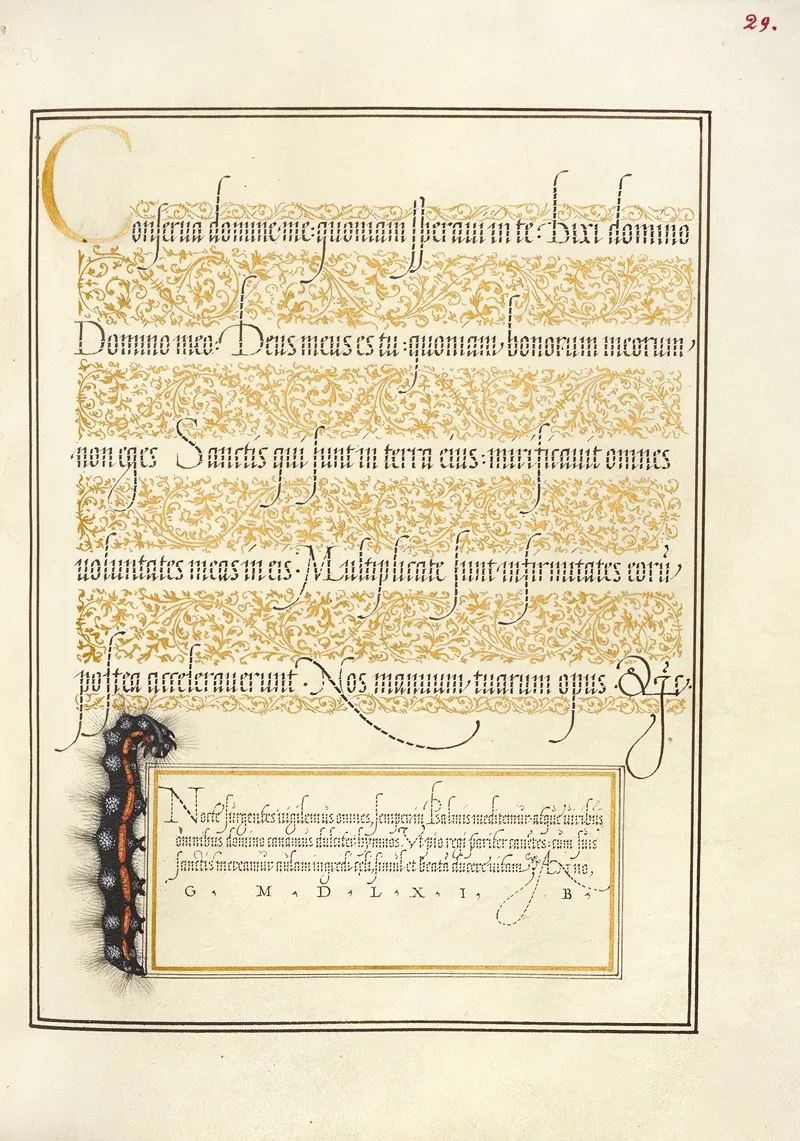 29.
Conserua domine me: quoniam speraui in te: Dixi domino
Domino meo: Deus meus es tu: quoniam bonorum meorum,
non eges Sanctis qui sunt in terra eius: mirificauit omnes
uoluntates meas in eis. Multiplicate sunt infirmitates eorū,
postea accelerauerunt. Nos manuum tuarum opus. &c.
Nocte surgentes uigilemus omnes, semper in Psalmis meditemur atque uiribus
omnibus domino canamus dulciter hymnos. Vt pio regi pariter canētes: cum suis
sanctis mereamur aulam ingredi celi, simul et beatā ducere uitam. Anno,
G, M, D, L, X, I, B,